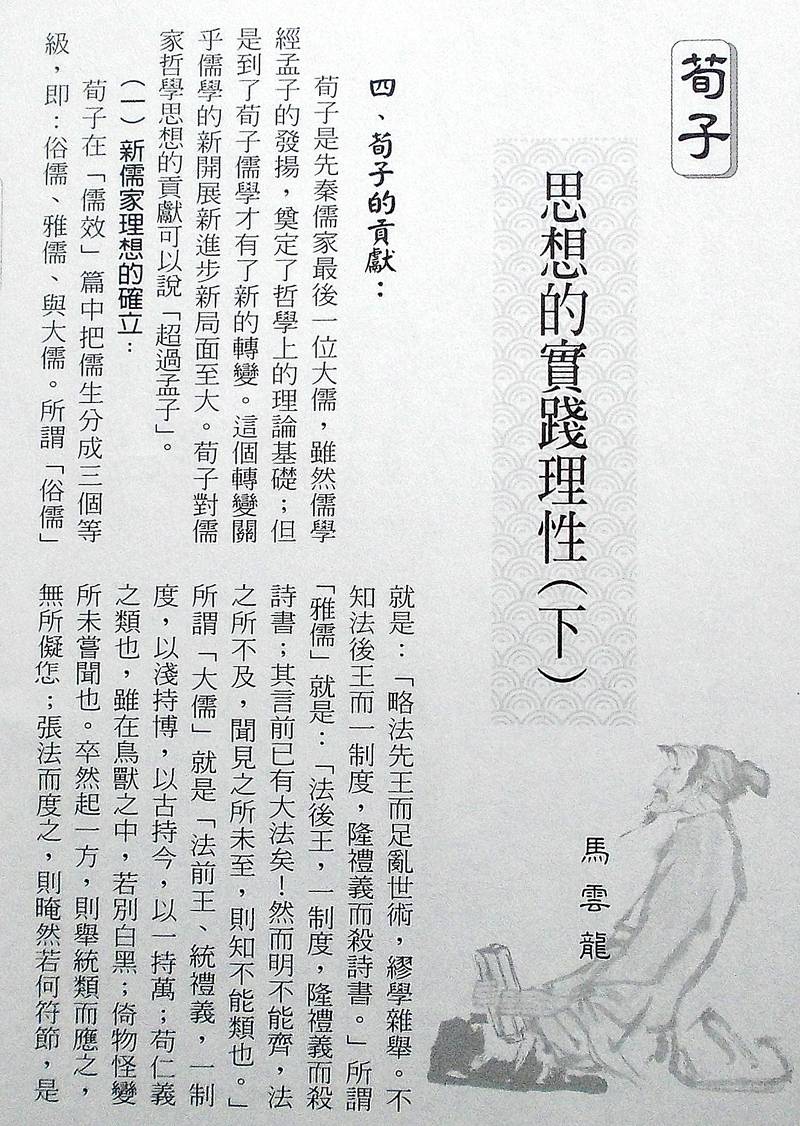 荀子
思想的實踐理性（下）
馬雲龍
四、荀子的貢獻：
荀子是先秦儒家最後一位大儒，雖然儒學
經孟子的發揚，奠定了哲學上的理論基礎；但
是到了荀子儒學才有了新的轉變。這個轉變關
乎儒學的新開展新進步新局面至大。荀子對儒
家哲學思想的貢獻可以說「超過孟子」。
（一）新儒家理想的確立：
荀子在「儒效」篇中把儒生分成三個等
級，即：俗儒、雅儒、與大儒。所謂「俗儒」
就是：「略法先王而足亂世術，繆學雜舉。不
知法後王而一制度，隆禮義而殺詩書。」所謂
「雅儒」就是：「法後王，一制度，隆禮義而殺
詩書；其言前已有大法矣！然而明不能齊，法
之所不及，聞見之所未至，則知不能類也。」
所謂「大儒」就是「法前王、統禮義，一制
度，以淺持博，以古持今，以一持萬；苟仁義
之類也，雖在鳥獸之中，若別白黑；倚物怪變
所未嘗聞也。卒然起一方，則舉統類而應之，
無所儗㤰；張法而度之，則晻然若何符節，是